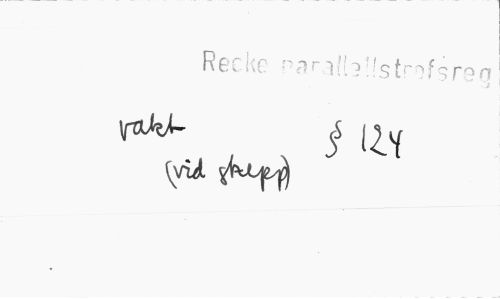 Recke parallellstrofsreg
vakt § 124
(vid skepp)